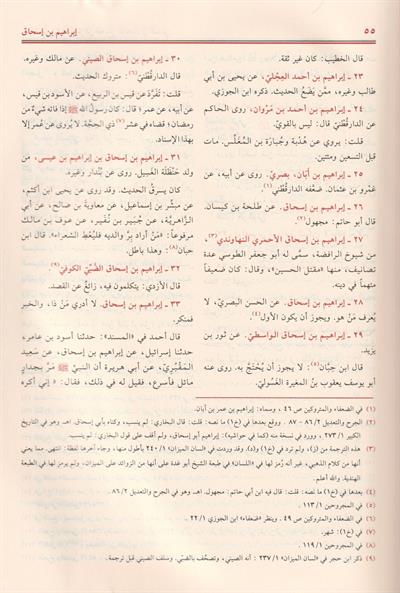 ٥٥
إبراهيم بن إسحاق
قال الخطيب: كان غير ثقة.
٢٣ ـ إبراهيم بن أحمد العِجْلي، عن يحيى بن أبي
طالب وغيره، ممَّن يَضَعُ الحديث. ذكره ابن الجوزي.
٢٤ ـ إبراهيم بن أحمد بن مَرْوان، روى الحاكم
عن الدارقُطْنيّ قال: ليس بالقويّ.
قلت: يروي عن هُدْبة وجُبارة بن المُغَلِّس. مات
قبل التسعين ومئتين.
٢٥ ـ إبراهيم بن أبَان، بصريّ. روى عن أبيه، عن
عَمرو بن عثمان. ضعَّفه الدارقُطنيّ(١).
٢٦ ـ إبراهيم بن إسحاق. عن طلحة بن كيسان.
قال أبو حاتم: مجهول(٢).
٢٧ ـ إبراهيم بن إسحاق الأحمري النهاوندي(٣)،
من شيوخ الرافضة، سمَّى له أبو جعفر الطوسي عدة
تصانيف، منها «مقتل الحسين»، وقال: كان ضعيفاً
متهماً في دينه.
٢٨ ـ إبراهيم بن إسحاق. عن الحسن البصريّ، لا
يُعرف مَنْ هو. ويجوز أن يكون الأول(٤).
٢٩ ـ إبراهيم بن إسحاق الواسطيّ. عن ثور بن
يزيد.
قال ابن حِبَّان(٥): لا يجوز أن يُحْتَجَّ به، روى عنه
أبو يوسف يعقوب بن المغيرة الغَسُوليّ.
٣٠ ـ إبراهيم بن إسحاق الصيني. عن مالك وغيره.
قال الدارقُطْنيّ(٦): متروك الحديث.
قلت: تَفَرَّدَ عن قيس بن الربيع، عن الأسود بن قيس،
عن أبيه، عن عمر؛ قال: كان رسولُ الله ﷺ إذا فاته شيءٌ من
رمضان؛ قضاه في عشر(٧) ذي الحجَّة. لا يُروى عن عُمر إلا
بهذا الإسناد.
٣١ ـ إبراهيم بن إسحاق بن إبراهيم بن عيسى، من
ولد حَنْظَلَة الغَسِيل. روى عن بُنْدار وغيره.
كان يسرقُ الحديث. وقد روى عن يحيى ابن أكثم،
عن مبشِّر بن إسماعيل، عن معاوية بن صالح، عن أبي
الزاهريَّة، عن جُبير بن نُفير، عن عوف بن مالك
مرفوعاً: «مَنْ أرادَ بِرَّ والدَيه فليُعْطِ الشعراء». قال ابن
حبان(٨): وهذا باطل.
٣٢ ـ إبراهيم بن إسحاق الضَّبِّيّ الكوفيّ(٩).
قال الأزدي: يتكلمون فيه، زائغٌ عن القصد.
٣٣ ـ إبراهيم بن إسحاق. لا أدري مَنْ ذا، والخبر
فمنكر.
قال أحمد في «المسند»: حدثنا أسود بن عامر،
حدثنا إسرائيل، عن إبراهيم بن إسحاق، عن سَعيد
المَقْبُريّ، عن أبي هريرة أن النبيَّ ﷺ مَرَّ بجدارٍ
مائل فأسرعَ، فقيل له في ذلك، فقال: «إني أكره
(١) في الضعفاء والمتروكين ص ٤٦ ، وسماه: إبراهيم بن عمر بن أبان.
(٢) الجرح والتعديل ٨٦/٢ - ٨٧ . ووقع بعدها في (خ١) ما نصه: قلت: قال البخاري: لم ينسب، وكناه بأبي إسحاق. اهـ. وهو في التاريخ
الكبير ٢٧٣/١ ، وورد في نسخة منه (كما في حواشيه): إبراهيم أبو إسحاق، ولم أقف على قول البخاري: لم ينسب.
(٣) هذه الترجمة من (ز)، ولم ترد في (خ١) و(د). وقد وردت في «لسان الميزان» ٢٤٠/١ بأطول منها، وجاء آخرها لفظة: انتهى. مما يعني
أنها من كلام الذهبي، غير أنه رُمز لها في «اللسان» في طبعة الشيخ أبو غدة على أنها من الزوائد على الميزان، ولم يرمز لها في الطبعة
الهندية. والله أعلم.
(٤) بعدها في (خ١) ما نصه: قلت: قال فيه ابن أبي حاتم: مجهول. اهـ. وهو في الجرح والتعديل ٨٦/٢ .
(٥) في المجروحين ١١٣/١ .
(٦) في الضعفاء والمتروكين ص ٤٩ . وينظر «ضعفاء» ابن الجوزي ٢٢/١
(٧) في (خ١): شهر.
(٨) في المجروحين ١١٩/١ .
(٩) ذكر ابن حجر في «لسان الميزان» ٢٣٧/١ : أنه الصيني، وتصحَّف بالضَّبِّي. وسلف الصيني قبل ترجمة.